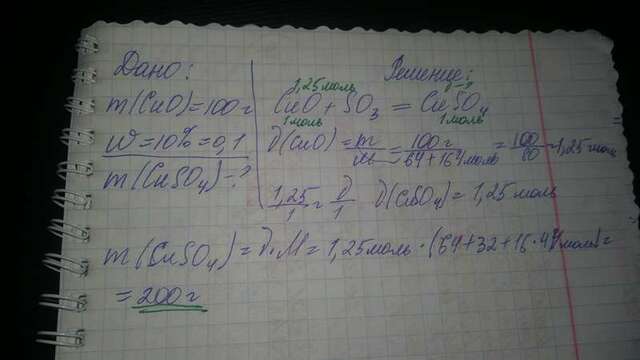 Дано:
m(CuO)=100г
W=10%=0,1
m(CuSO₄)-?
Решение:
1,25 моль ν-?
CuO+SO₃=CuSO₄
1 моль 1 моль
ν(CuO)=m/M=100г/64+16г/моль=100/80=1,25 моль
1,25/1=ν/1 ν(CuSO₄)=1,25 моль
m(CuSO₄)=ν·M=1,25 моль·(64+32+16·4г/моль)=
=200г